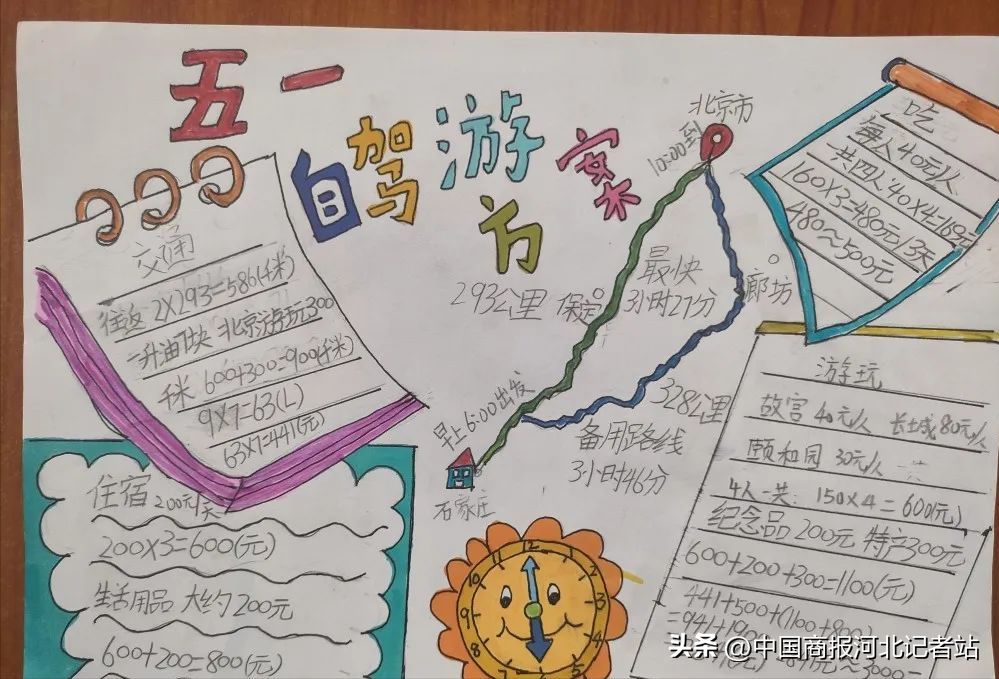 五一
自驾游方案
交通
往返 2×293=586(千米)
一升油7块 北京游玩300
千米 600+300=900(千米)
9×7=63(L)
63×7=441(元)
住宿 200元/天
200×3=600(元)
生活用品 大约200元
600+200=800(元)
北京市
10:00到
293公里
保定
最快
3小时27分
廊坊
328公里
备用路线
3小时46分
早上6:00出发
石家庄
12
1
2
3
4
5
7
8
9
10
11
吃
每人40元/人
一共四人40×4=160元
160×3=480元/3天
480~500元
游玩
故宫 40元/人 长城80元/人
颐和园 30元/人
4人一共: 150×4=600(元)
纪念品200元 特产300元
600+200+300=1100(元)
441+500+(1100+800)
=941+190
头条 @中国商报河北记者站